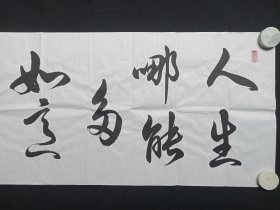 人生
哪能
多
如意